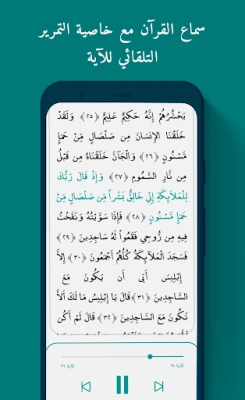 سماع القرآن مع خاصية التمرير
التلقائي للآية
يَحْشُرُهُمْ إِنَّهُ حَكِيمٌ عَلِيمٌ ﴿٢٥﴾ وَلَقَدْ
خَلَقْنَا الْإِنسَانَ مِن صَلْصَالٍ مِّنْ حَمَإٍ
مَّسْنُونٍ ﴿٢٦﴾ وَالْجَانَّ خَلَقْنَاهُ مِن قَبْلُ
مِن نَّارِ السَّمُومِ ﴿٢٧﴾ وَإِذْ قَالَ رَبُّكَ
لِلْمَلَائِكَةِ إِنِّي خَالِقٌ بَشَرًا مِّن صَلْصَالٍ مِّنْ
حَمَإٍ مَّسْنُونٍ ﴿٢٨﴾ فَإِذَا سَوَّيْتُهُ وَنَفَخْتُ
فِيهِ مِن رُّوحِي فَقَعُوا لَهُ سَاجِدِينَ ﴿٢٩﴾
فَسَجَدَ الْمَلَائِكَةُ كُلُّهُمْ أَجْمَعُونَ ﴿٣٠﴾ إِلَّا
إِبْلِيسَ أَبَىٰ أَن يَكُونَ مَعَ
السَّاجِدِينَ ﴿٣١﴾ قَالَ يَا إِبْلِيسُ مَا لَكَ أَلَّا
تَكُونَ مَعَ السَّاجِدِينَ ﴿٣٢﴾ قَالَ لَمْ أَكُن